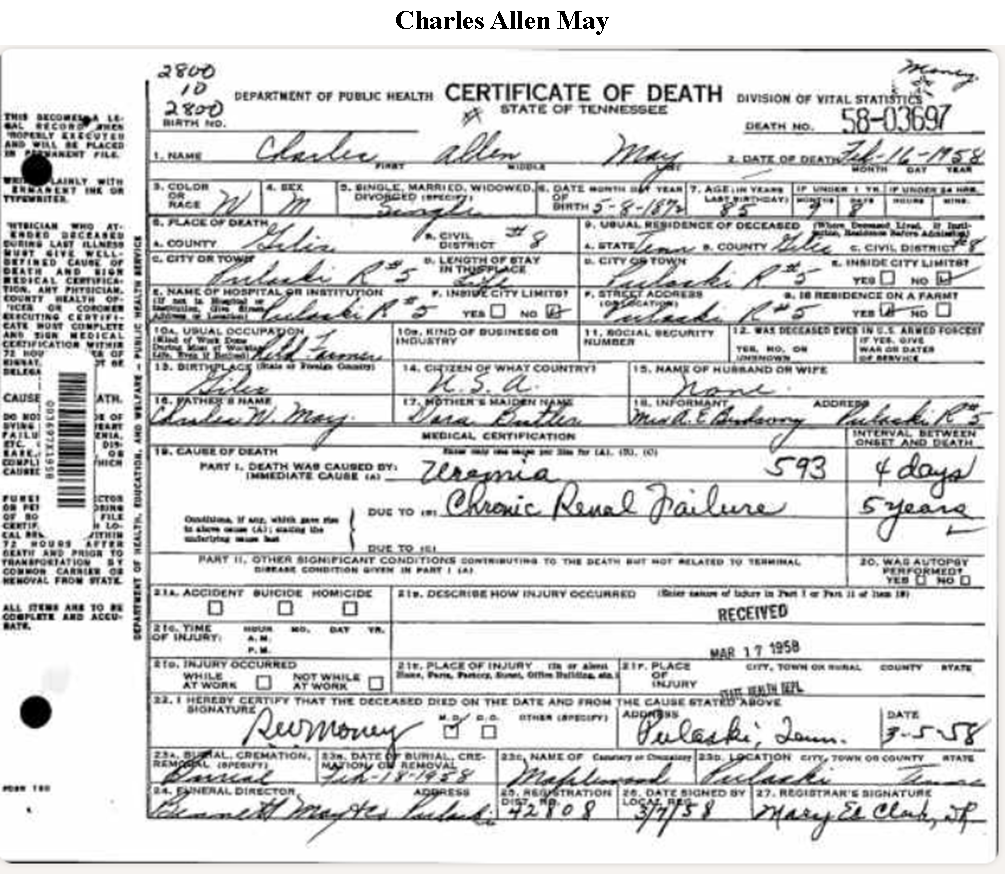 Charles Allen May
2800
10
2800
BIRTH NO.
DEPARTMENT OF PUBLIC HEALTH
CERTIFICATE OF DEATH
STATE OF TENNESSEE
DIVISION OF VITAL STATISTICS
Money
DEATH NO. 58-03697
1. NAME Charles Allen May
FIRST MIDDLE LAST
2. DATE OF DEATH Feb-16-1958
MONTH DAY YEAR
3. COLOR OR RACE W
4. SEX M
5. SINGLE, MARRIED, WIDOWED, DIVORCED (SPECIFY) Single
6. DATE OF BIRTH MONTH DAY YEAR 5-8-1872
7. AGE (IN YEARS LAST BIRTHDAY) 85
IF UNDER 1 YR. IF UNDER 24 HRS.
MONTHS 9 DAYS 8 HOURS MINS.
8. PLACE OF DEATH
A. COUNTY Giles
B. CIVIL DISTRICT #8
9. USUAL RESIDENCE OF DECEASED (Where Deceased Lived. If Institution, Residence Before Admission)
A. STATE Tenn B. COUNTY Giles C. CIVIL DISTRICT #8
C. CITY OR TOWN Pulaski R#5
D. LENGTH OF STAY IN THIS PLACE Life
D. CITY OR TOWN Pulaski R#5
E. INSIDE CITY LIMITS? YES NO
E. NAME OF HOSPITAL OR INSTITUTION (If not in Hospital or Institution, Give Street Address or Location) Pulaski R#5
F. INSIDE CITY LIMITS? YES NO
F. STREET ADDRESS Pulaski R#5
G. IS RESIDENCE ON A FARM? YES NO
10A. USUAL OCCUPATION (Kind of Work Done During Most of Working Life, Even if Retired) Retd Farmer
10B. KIND OF BUSINESS OR INDUSTRY
11. SOCIAL SECURITY NUMBER
12. WAS DECEASED EVER IN U.S. ARMED FORCES?
YES, NO, OR UNKNOWN
IF YES, GIVE WAR OR DATES OF SERVICE
13. BIRTHPLACE (State or Foreign Country) Giles
14. CITIZEN OF WHAT COUNTRY? U.S.A.
15. NAME OF HUSBAND OR WIFE None
16. FATHER'S NAME Charles W. May
17. MOTHER'S MAIDEN NAME Dora Butler
18. INFORMANT ADDRESS Mrs A. E. Pulaski R#5
MEDICAL CERTIFICATION
INTERVAL BETWEEN ONSET AND DEATH
19. CAUSE OF DEATH Enter only one cause per line for (A), (B), (C)
PART I. DEATH WAS CAUSED BY: IMMEDIATE CAUSE (A) Uremia 593 4 days
DUE TO (B) Chronic Renal Failure 5 years
Conditions, if any, which gave rise to above cause (A); stating the underlying cause last
DUE TO (C)
PART II. OTHER SIGNIFICANT CONDITIONS CONTRIBUTING TO THE DEATH BUT NOT RELATED TO TERMINAL DISEASE CONDITION GIVEN IN PART I (A)
20. WAS AUTOPSY PERFORMED? YES NO
21A. ACCIDENT SUICIDE HOMICIDE
21B. DESCRIBE HOW INJURY OCCURRED (Enter nature of Injury in Part I or Part II of Item 19)
RECEIVED
21C. TIME OF INJURY: HOUR MO. DAY YR.
A.M.
P.M.
MAR 17 1958
21D. INJURY OCCURRED
WHILE AT WORK NOT WHILE AT WORK
21E. PLACE OF INJURY (In or about Home, Farm, Factory, Street, Office Building, etc.)
21F. PLACE OF INJURY CITY, TOWN OR RURAL COUNTY STATE
STATE HEALTH DEPT.
22. I HEREBY CERTIFY THAT THE DECEASED DIED ON THE DATE AND FROM THE CAUSE STATED ABOVE
SIGNATURE Money M.D. D.O. OTHER (SPECIFY)
ADDRESS Pulaski, Tenn.
DATE 3-5-58
23A. BURIAL, CREMATION, REMOVAL (SPECIFY) Burial
23B. DATE OF BURIAL, CREMATION OR REMOVAL Feb-18-1958
23C. NAME OF Cemetery or Crematory Maplewood
23D. LOCATION CITY, TOWN OR COUNTY STATE Pulaski Tenn
24. FUNERAL DIRECTOR ADDRESS Bennett May & Co Pulaski
25. REGISTRATION DIST. NO. 42808
26. DATE SIGNED BY LOCAL REG. 3/7/58
27. REGISTRAR'S SIGNATURE Mary El Clark, DR
DEPARTMENT OF HEALTH, EDUCATION, AND WELFARE - PUBLIC HEALTH SERVICE
003697X1958
ALL ITEMS ARE TO BE COMPLETE AND ACCURATE.